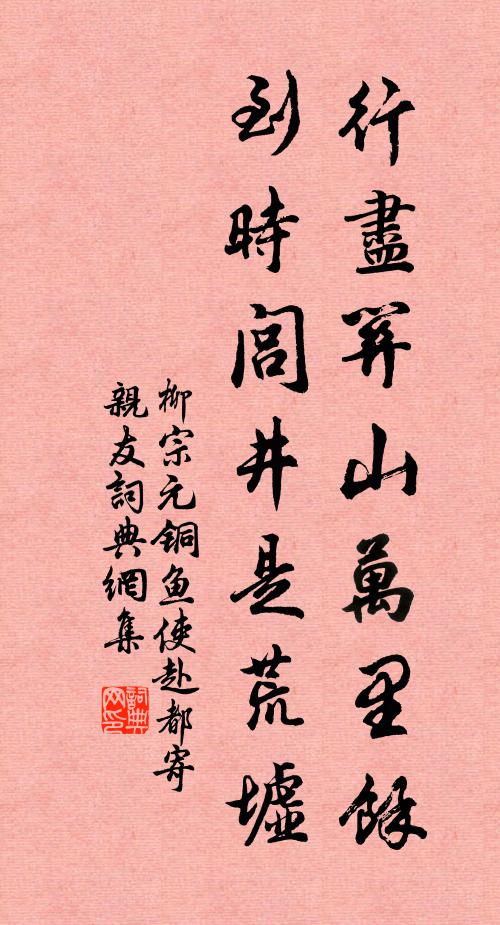 行盡關山萬里餘
到時閭井是荒墟
柳宗元铜鱼使赴都寄
親友詞典網集
詞典
网印